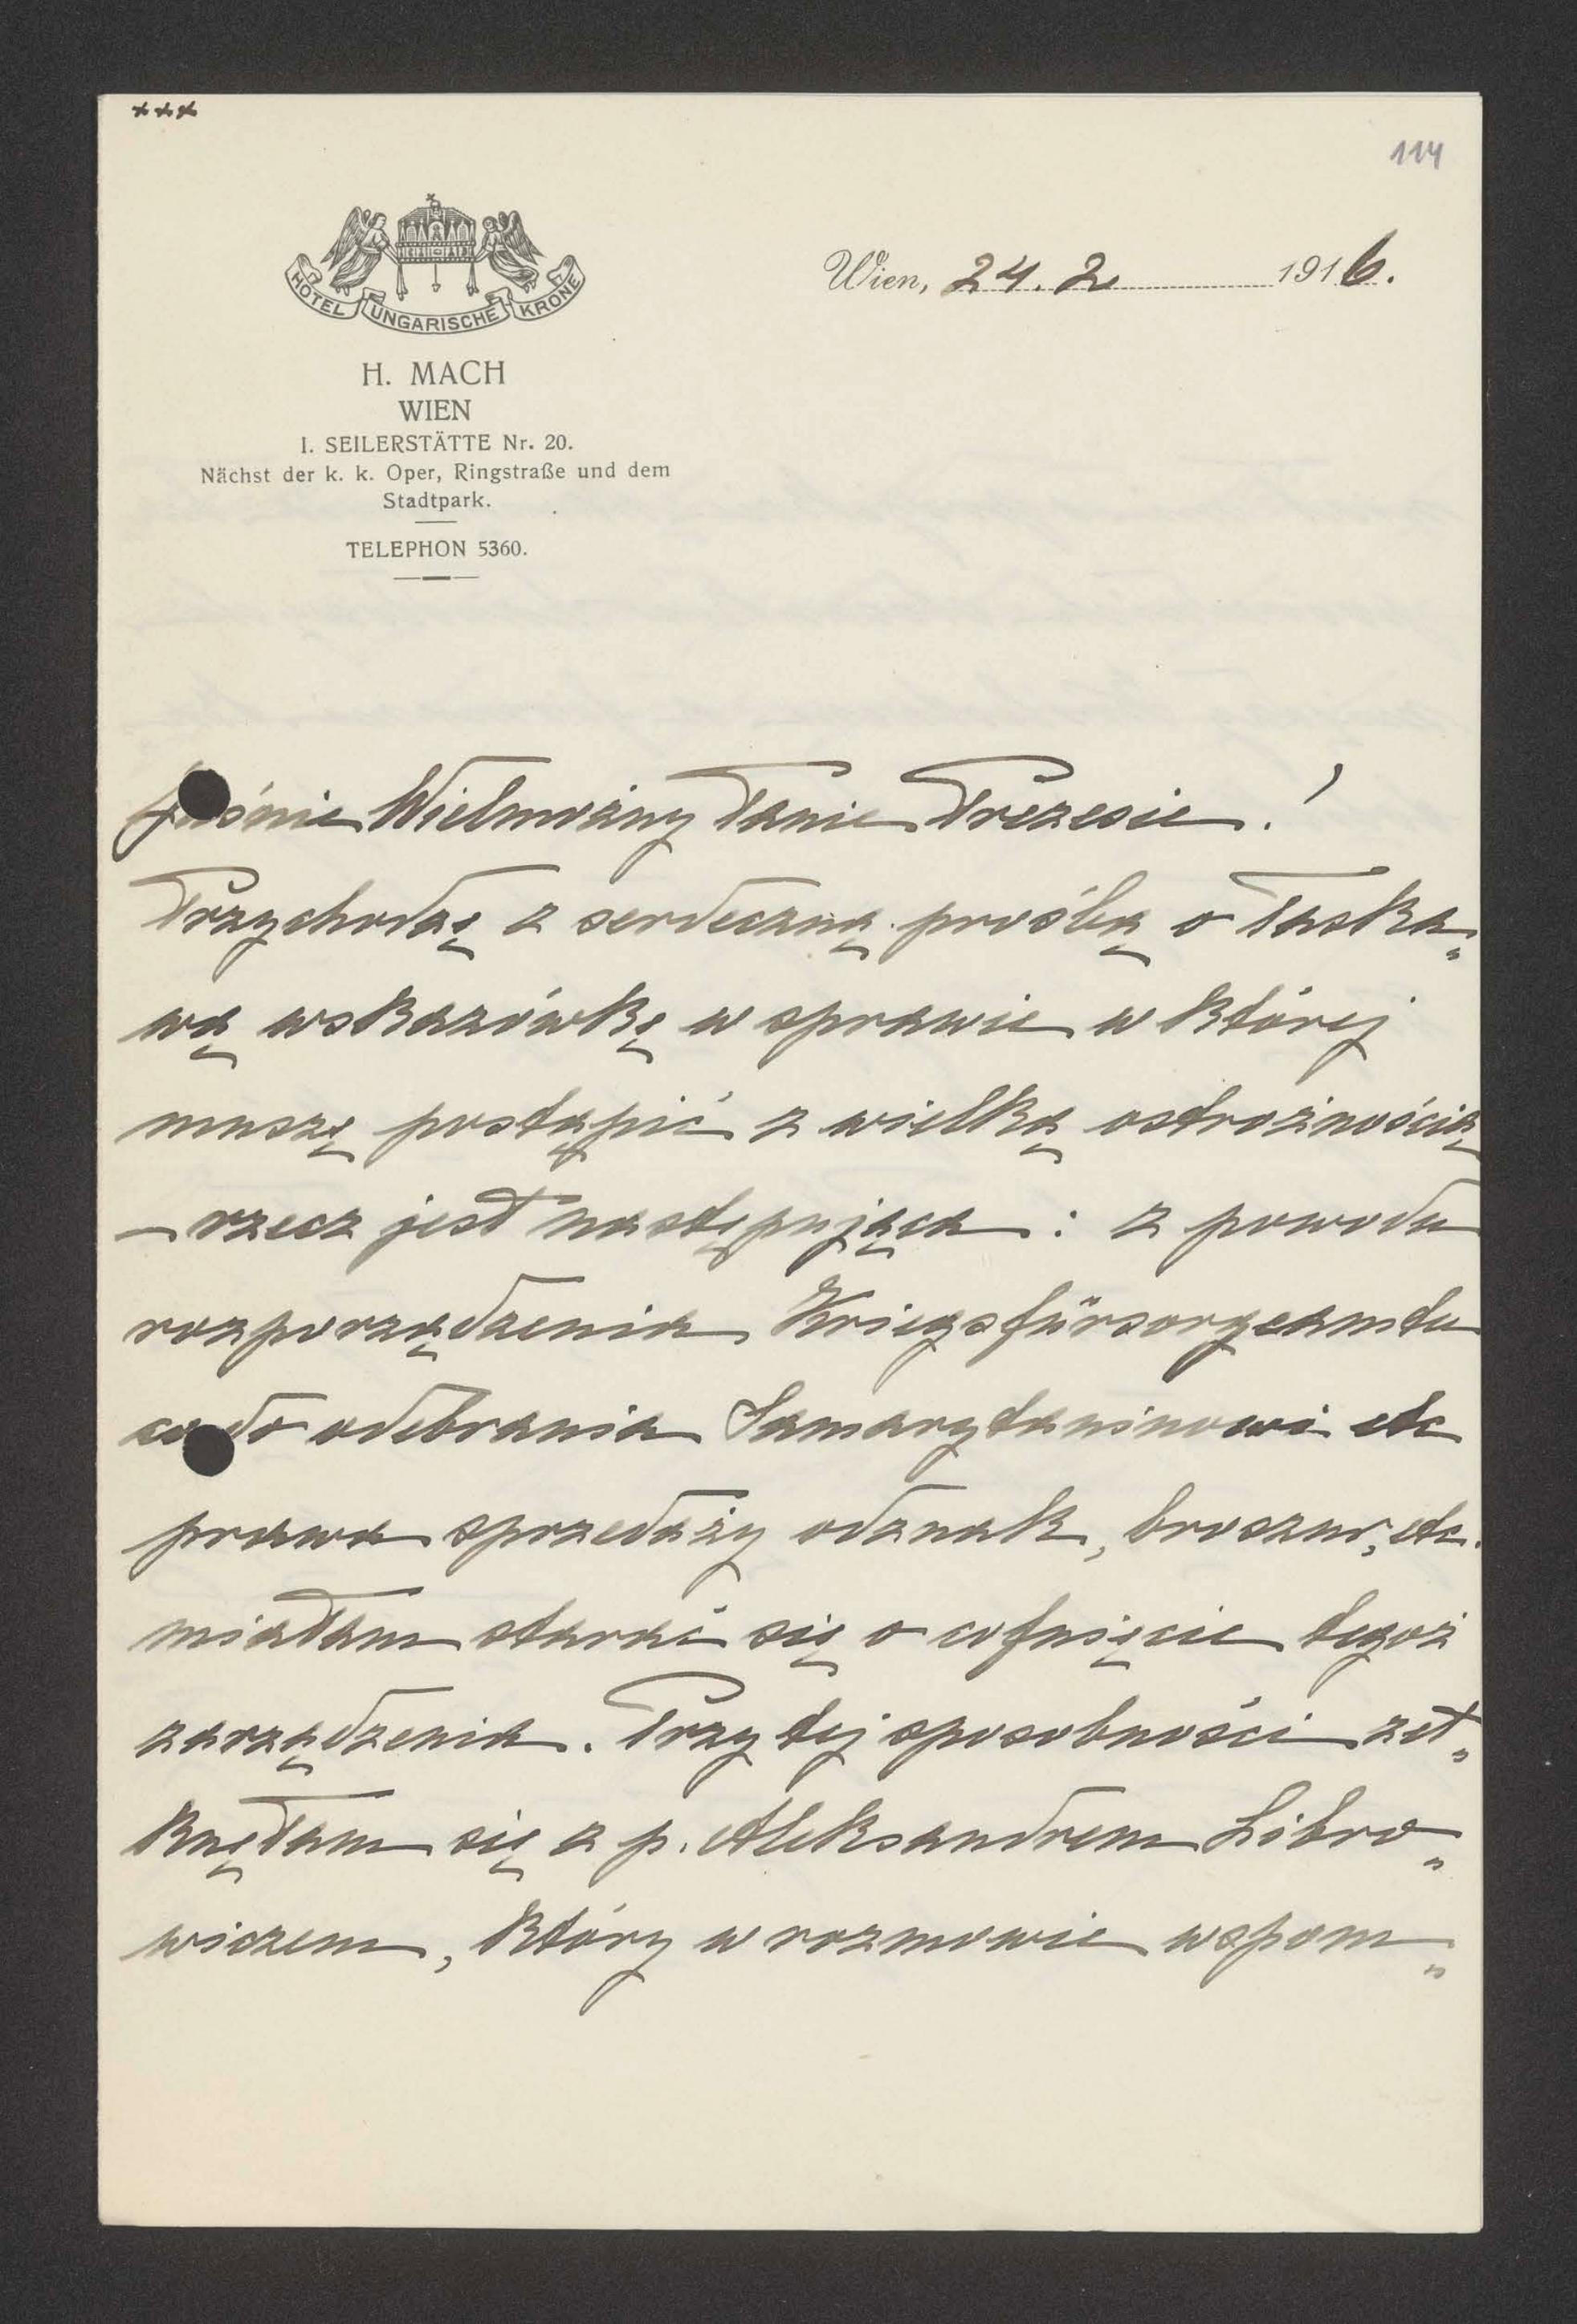 +++
114
HOTEL UNGARISCHE KRONE
Wien, 24. 2 1916.
H. MACH
WIEN
I. SEILERSTÄTTE Nr. 20.
Nächst der k. k. Oper, Ringstraße und dem
Stadtpark.
TELEPHON 5360.
Jaśnie Wielmożny Panie Prezesie!
Przychodzę z serdeczną prośbą o łaska„
wą wskazówkę w sprawie w której
muszę postąpić z wielką ostrożnością
– rzecz jest następująca: z powodu
rozporządzenia Kriegsfürsorgeamtu
co do odebrania Samarytaninowi etc
prawa sprzedaży odznak, broszur, etc.
miałam starać się o cofnięcie tegoż
zarządzenia. Przy tej sposobności zet„
knęłam się z p. Aleksandrem Libro„
wiczem, który w rozmowie wspom„